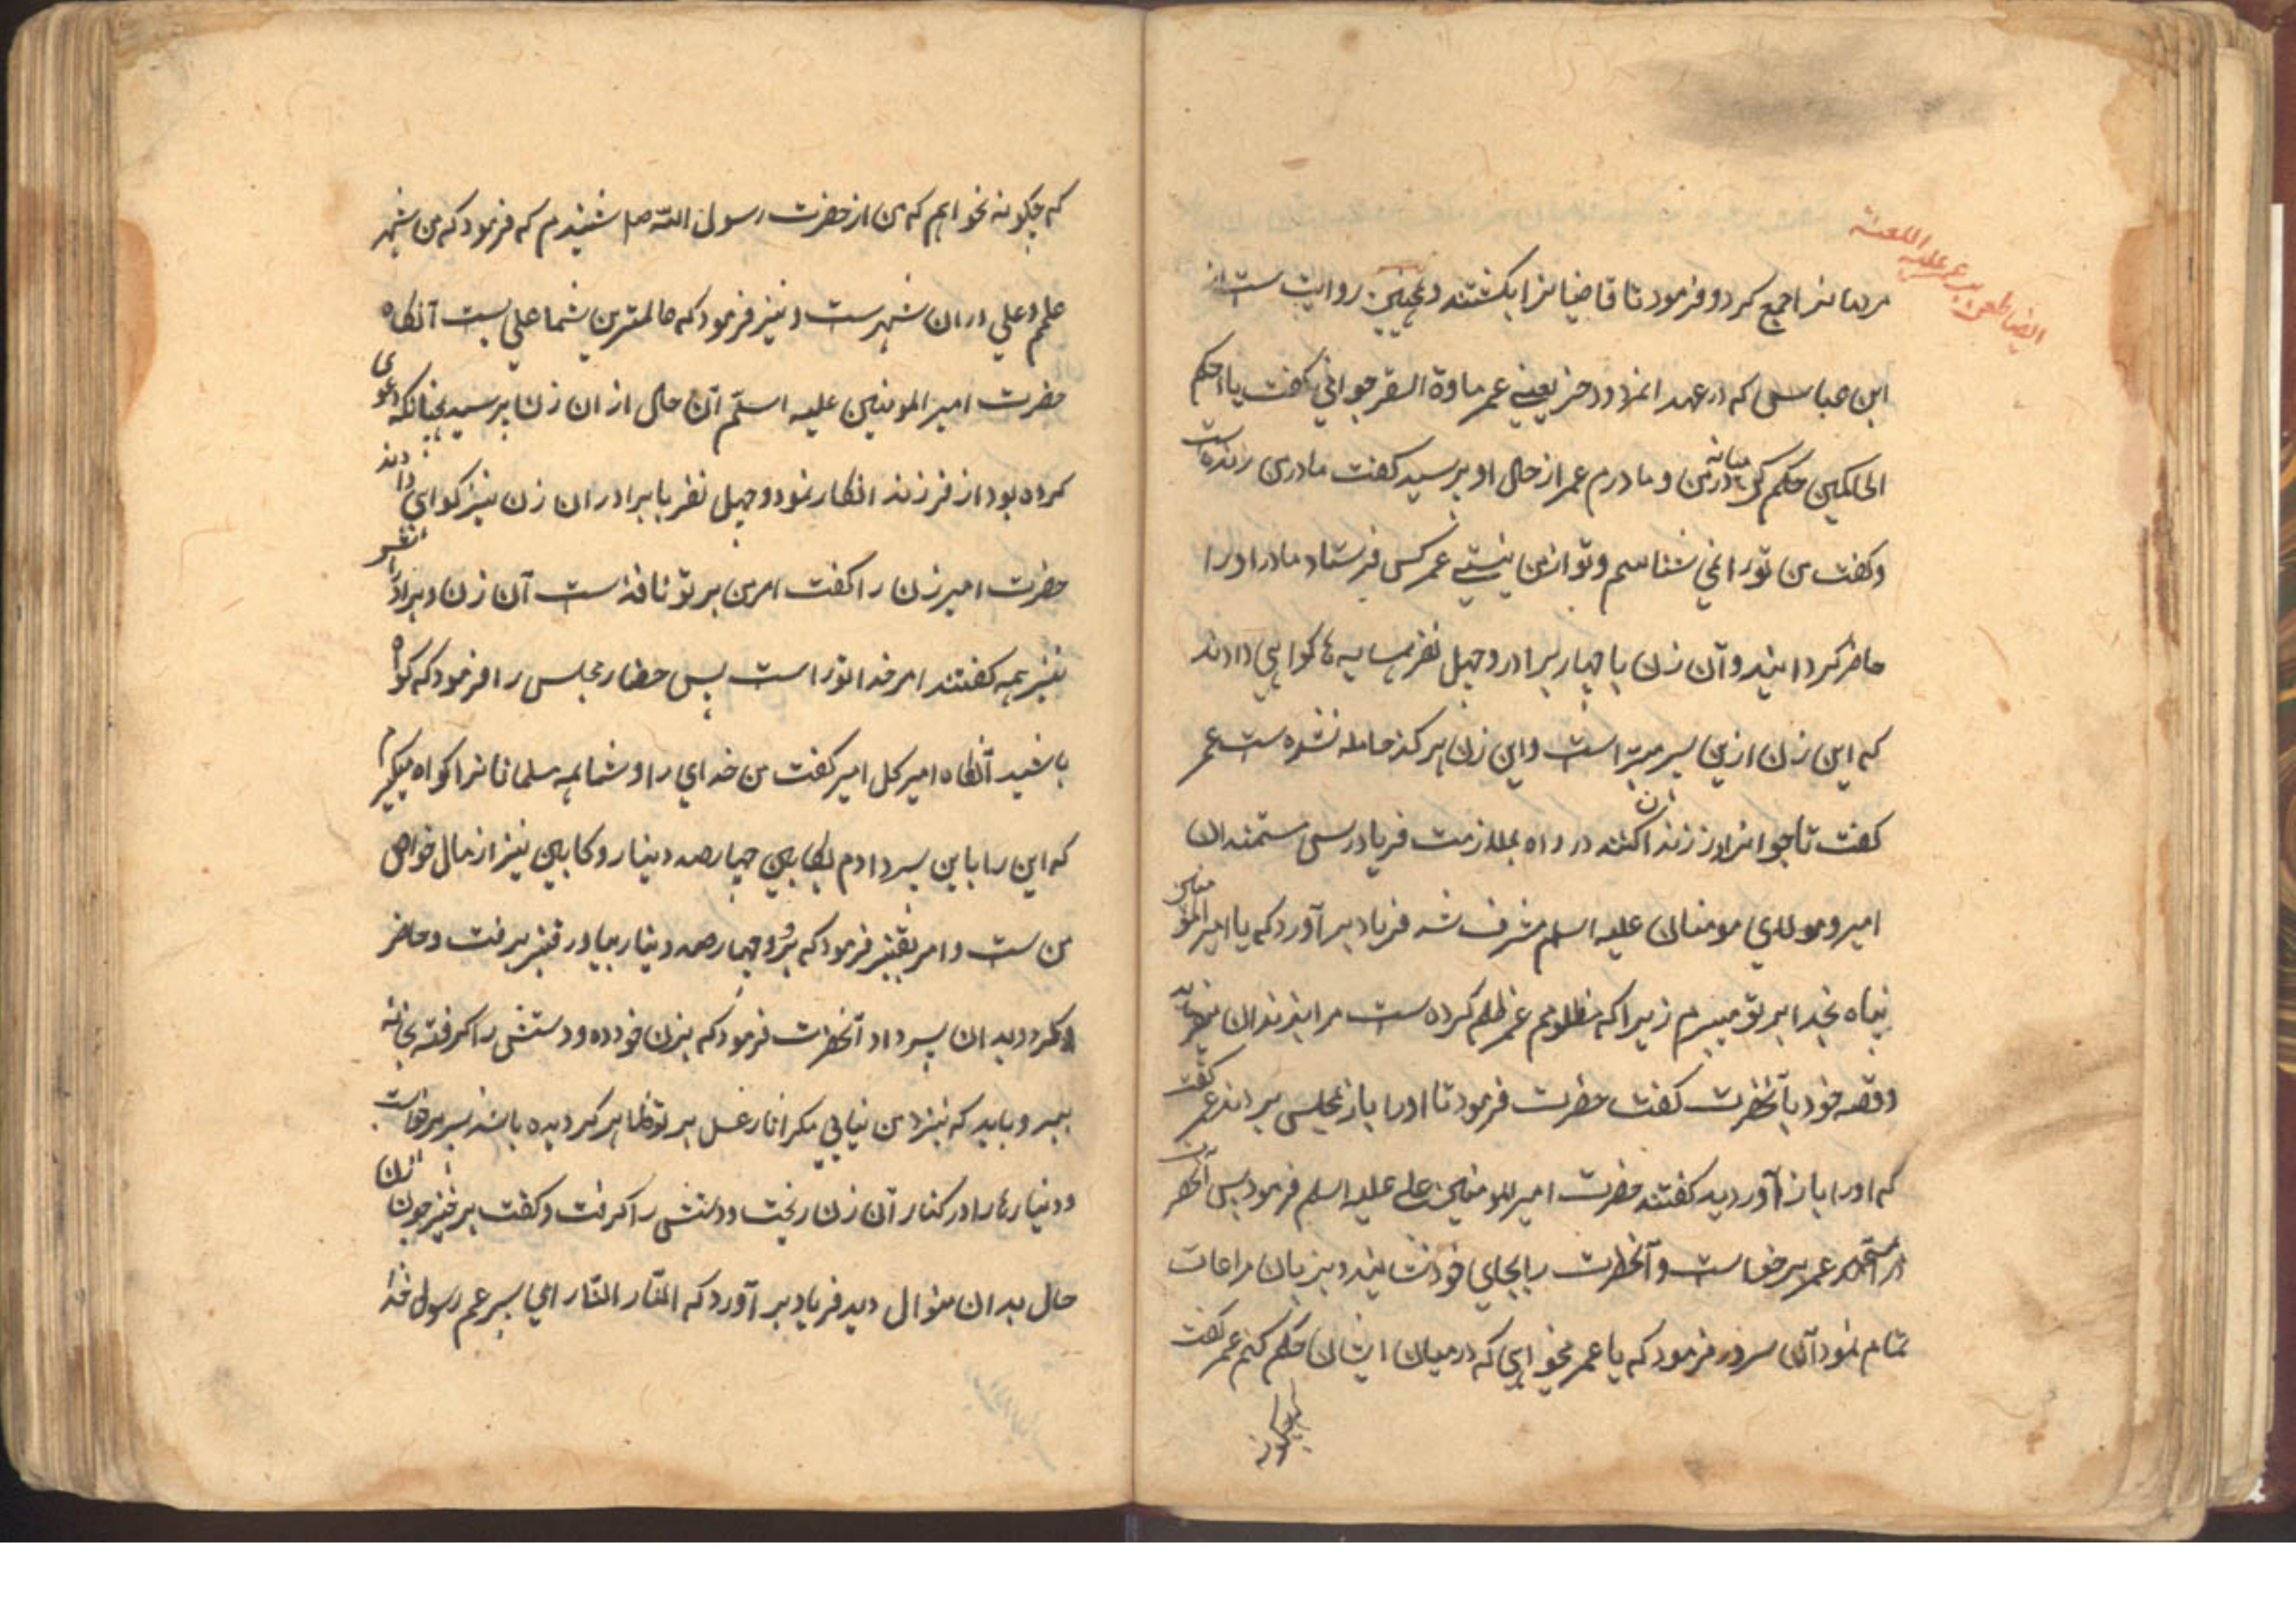 ایضا طعن بر عمر علیه اللعنه
مردمانرا جمع کرد و فرمود تا قاضیانرا بکشتند و همچنین روایت ست از
ابن عباس که در عهد یعنی عمر جوانی گفت یا احکم
الحاکمین حکم کن در میانه من و مادرم عمر از حال او پرسید گفت مادر من رانده است
وگفت من تو را نمی شناسم و تو از من نیستی عمر کس فرستاد مادر او را
حاضر گردانیند و آن زن با چهار برادر و چهل نفر همسایه ها کواهی دادند
که این زن ازین پسر مبرّا است و این زن هرکز حامله نشده ست عمر
کفت تا جوانرا زنند در راه بملازمت فریادرس مستمندان
امیر و مولای مومنان علیه اسلم مشرف شد فریاد برآورد که یا امیر المومنین
پناه بخدا بر تو میبرم زیرا که مظلومم عمر ظلم کرده ست مرا بزندان میفرستد
و قصه خود بآنحضرت کفت حضرت فرمود تا او را باز بمجلس بردند عمر کفت
که او را باز آوردید کفتند حضرت امیرالمومنین علی علیه اسلم فرمود پس آنحضرت
در آمد عمر برخواست و آنحضرت را بجای خود نشانید و بزبان مراعات
تمام نمود آن سرور فرمود که یا عمر میخواهی که درمیان ایشان حکم کنم عمر کفت
که چکونه
که چکونه نخواهم که من از حضرت رسول اللّه صلم شنیدم که فرمود که من شهر
علمم و علی در ان شهرست و نیز فرمود که عالمترین شما علی ست آنکاه
حضرت امیرالمومنین علیه اسلّم آن حال از ان زن پرسید چنانکه دعوی
کرده بود از فرزند انکار نمود و چهل نفر با برادران زن نیز کواهی دادند
حضرت امیر زن را کفت امر من بر تو نافذ است آن زن و برادرانش
نیز همه کفتند امر خدا تو راست پس حضار مجلس را فرمود که کواه
باشید آنکاه امیر کل امیر کفت من خدای را و شما همه مسلمانانرا کواه میکیرم
که این را باین پسر دادم بکابین چهارصد دینار و کابین نیز از مال خواص
من ست و امر بقنبر فرمود که برو و چهارصد دینار بیاور قنبر برفت و حاضر
کرد و بدان پسر داد آنحضرت فرمود که بزن خود ده و دستش را کرفته بخانه
ببر و باید که نیز من نیایی مکر اثار غسل بر تو ظاهر کردیده باشد پسر برخواست
و دینارها را در کنار آن زن ریخت و دستش را کرفت و کفت برخیز چون آن زن
حال بدان منوال دید فریاد برآورد که النّار النّار ای پسر عم رسول خدا